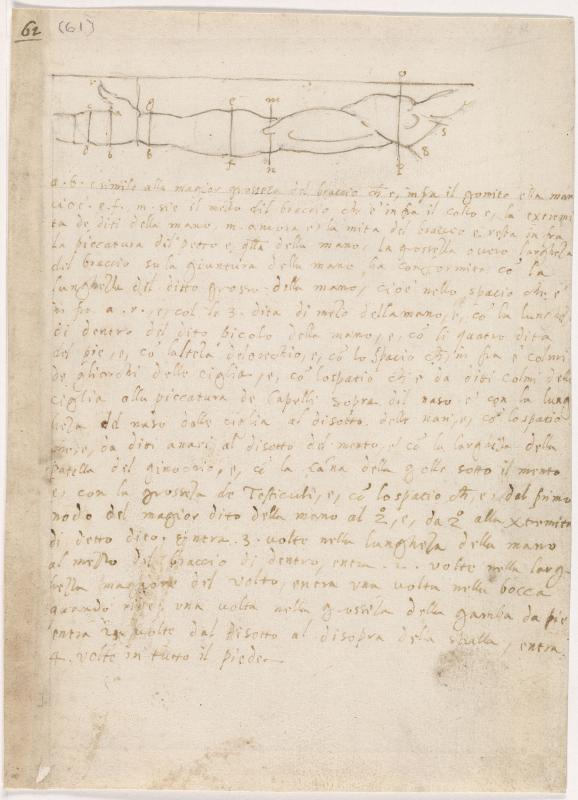 62 (61)
o
c a g e m
s
d b h f n p 8
a. b. e simile alla magior grossezza del braccio ch e, infra il gomito e la man
cioè. e. f. m. sie il mezo dil braccio, che è infra il collo e, la extremi
ta de diti della mano, m. ancora e, la mita del braccio e, resta infra
la piccatura dil petto e, qlla della mano, la grossezza overo larghezza
dil braccio su la giuntura della mano, ha conformita co la
lunghezza del ditto grosso della mano, cioè nello spacio che è
infra. a. r., e, col le 3. dita di mezo della mano, e, co la lung
di dentro del dito picolo della mano, e, co li quatro dita
del pie, e, co l'alteza de orechio, e, co lo spacio ch, infra e colmi
de gli orchi delle ciglia, e, co lo spatio ch è da diti colmi delle
ciglia alla piccatura de capelli sopra dil naso e con la lung
heza del naso dalle ciglia al disotto delle nari, e, co lo spatio
da diti anari al disotto del mento, e, co la largheza della
patella del ginocchio, e, co la cana della golle sotto il mento
e, con la grosseza de Testiculi, e, co lo spacio ch, e, dal primo
nodo del magior dito della mano al 2º, e, da 2º alla xtremita
di detto dito. Entra. 3. volte nella lunghezza della mano
al mezzo del braccio di dentro, entra. 2. volte nella larg
hezza magiore del volto, entra una volta nella bocca
quando ride, una volta nella grosseza della gamba da pie
entra 2. volte dal disotto al disopra dela spalla, entra
4. volte in tutto il piede.